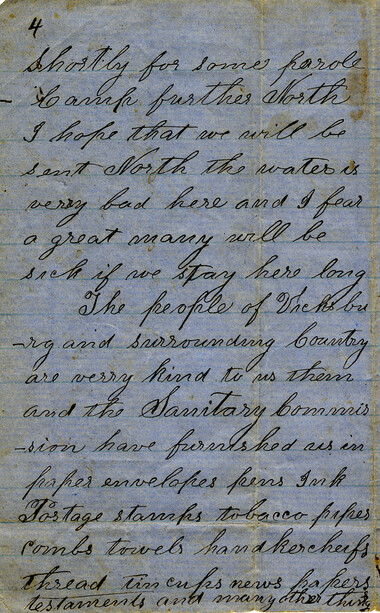 4
shortly for some parole
Camp further North
I hope that we will be
sent North the water is
verry bad here and I fear
a great many will be
sick if we stay here long
The people of Vicksbu
-rg and surrounding Country
are verry kind to us them
and the Sanitary Commis
-sion have furnished us in
paper envelopes pens Ink
Postage stamps tobacco pipes
combs towels handkercheifs
thread tin cups news papers
testaments and many other thin